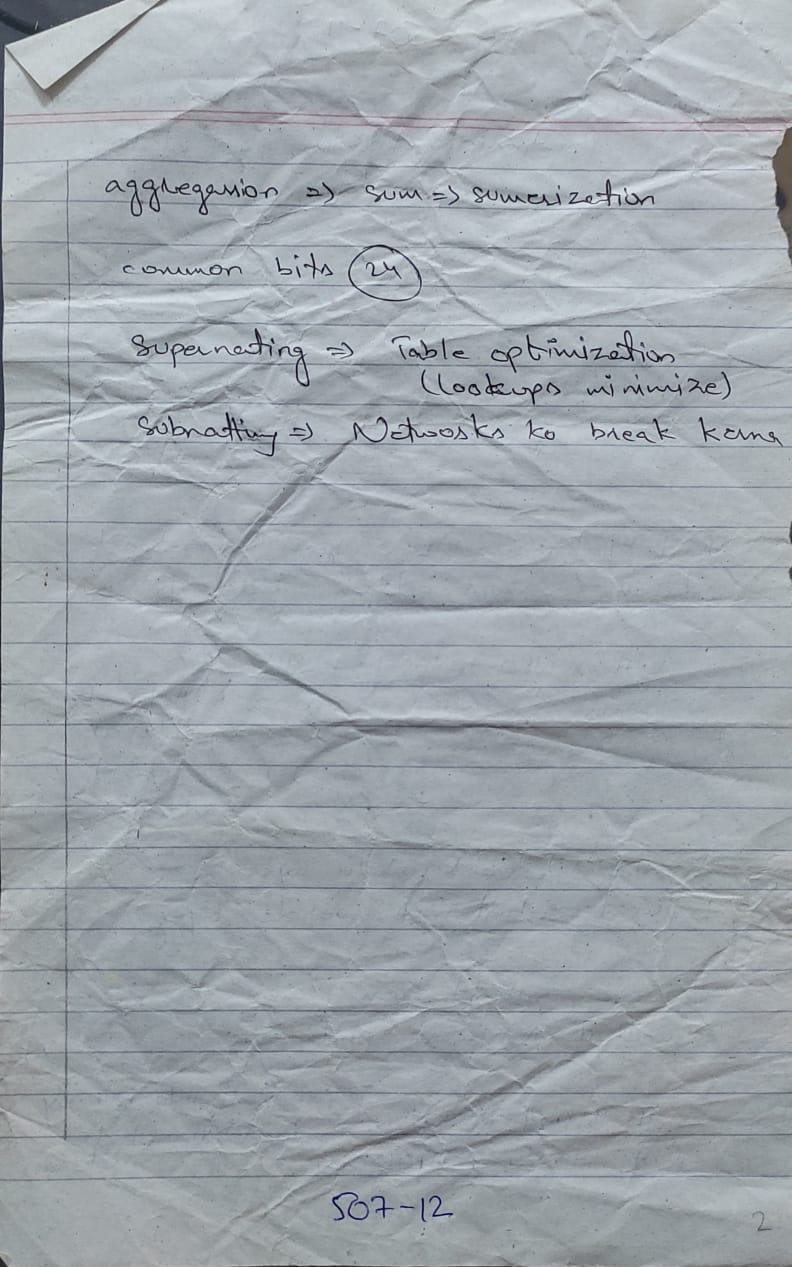 aggregassion => sum => sumerization
common bits 24
Supernating => Table optimization
(lookups minimize)
Subnatting => Networks ko break kerna
507-12
2